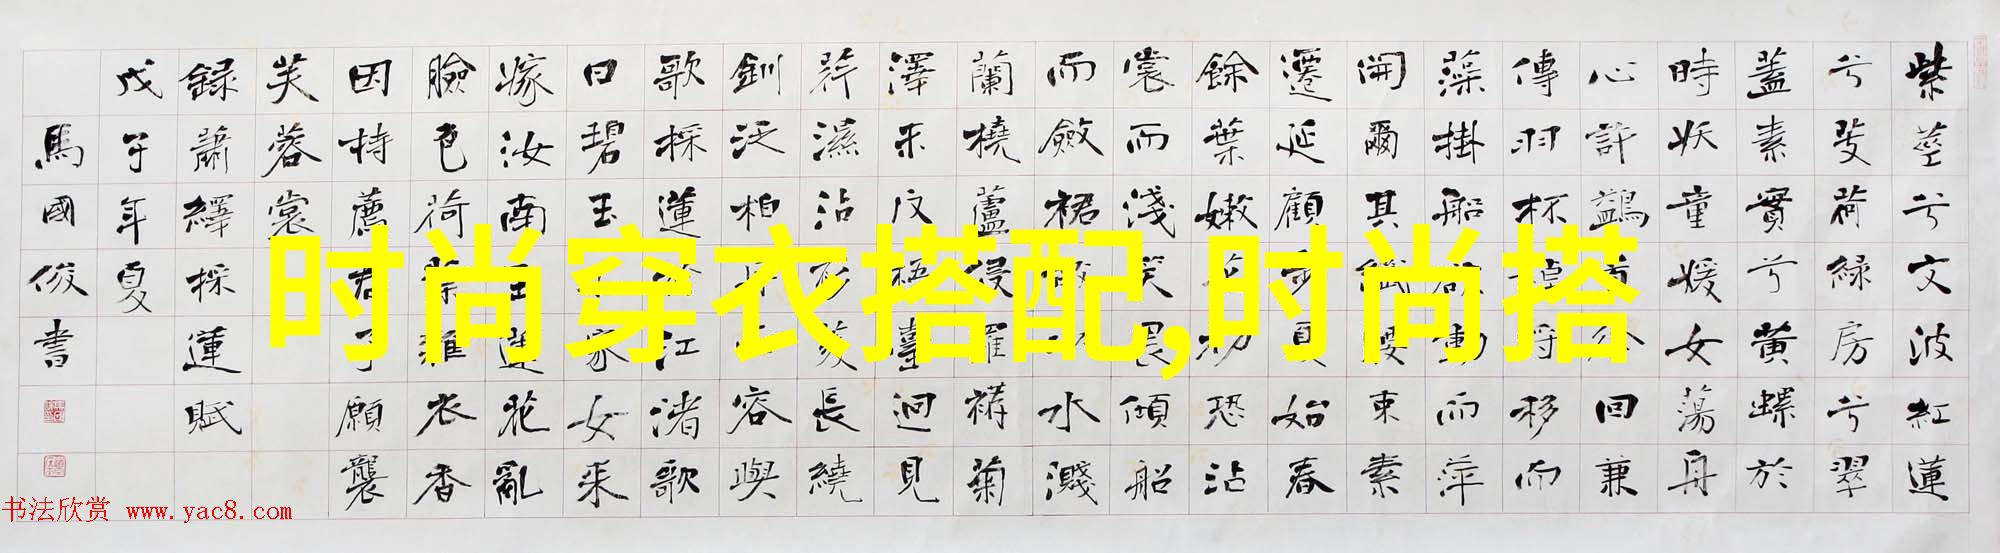 紫莖兮文波紅蓮
兮芰荷綠房兮翠
蓋素實兮黃螺於
時妖童媛女蕩舟
心許鷁首徐回兼
傳羽杯棹將移而
藻掛船欲動而萍
開爾其纖腰束素
遷延顧步夏始春
餘葉嫩花初恐沾
裳而淺笑畏傾船
而斂裾水濺
蘭橈蘆侵羅褠菊
澤未反梧臺迥見
荇濕沾衫菱長繞
釧泛柏舟而容與
歌採蓮於江渚歌
曰碧玉小家女來
嫁汝南王蓮花亂
臉色荷葉雜衣香
因持薦君子願襲
芙蓉裳
錄蕭繹採蓮賦
戊子年夏
馬國俊書
时尚穿衣搭配,时尚搭
书法欣赏 www.yac8.com